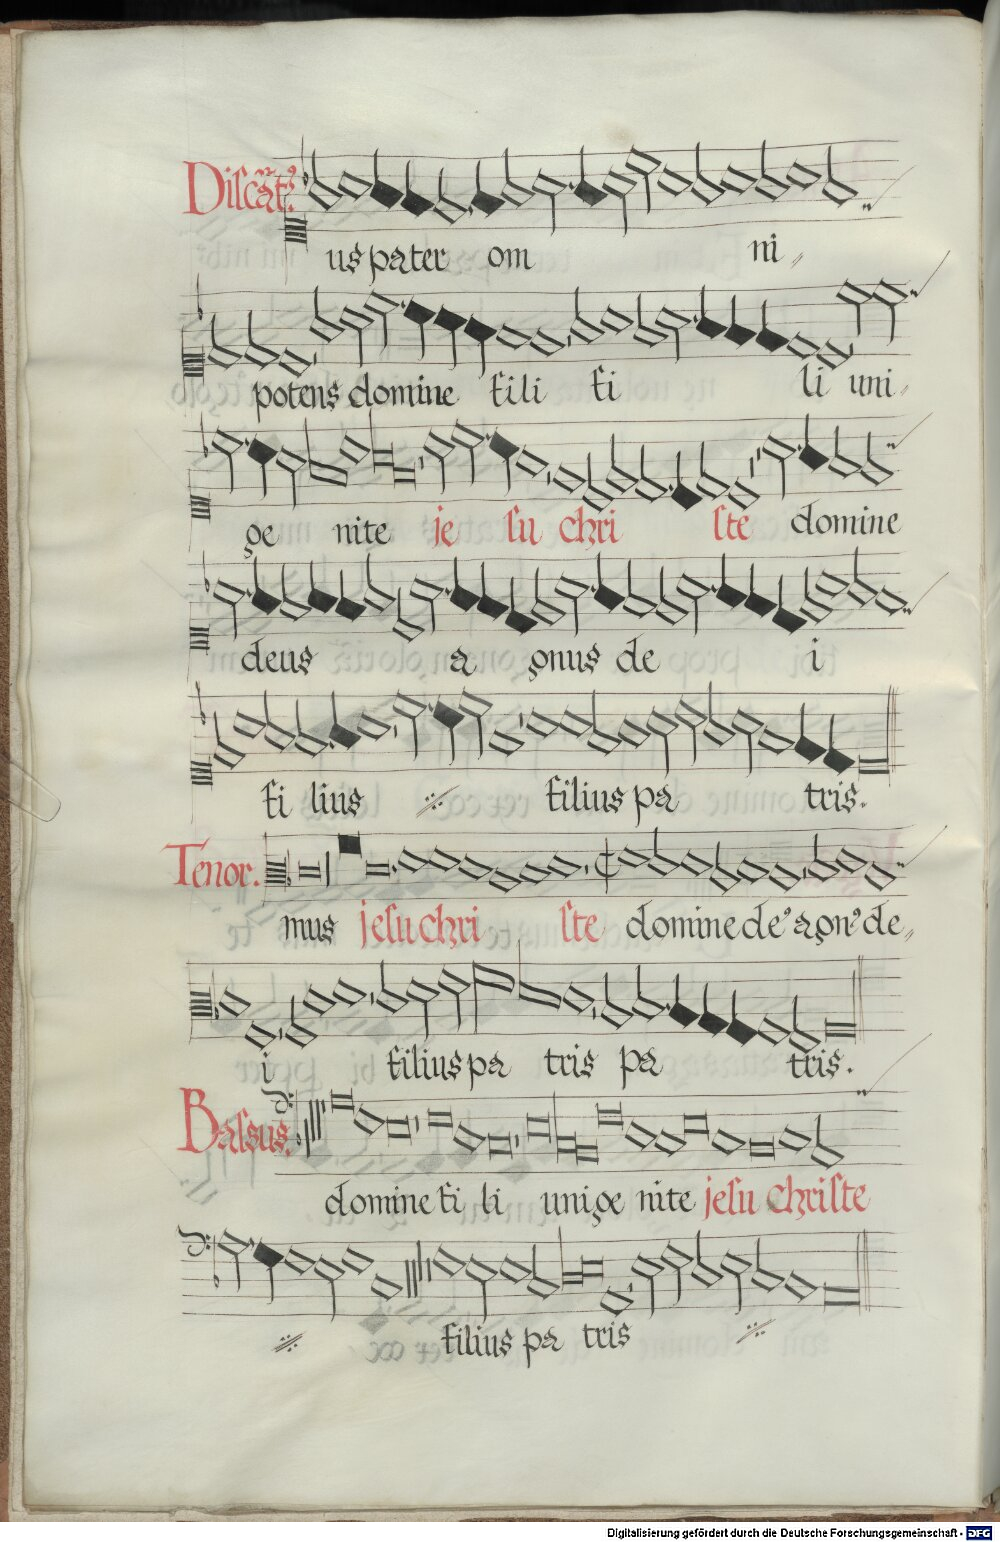 Discãt⁹.
us pater om ni
potens domine fili fi li uni
ge nite je su chri ste domine
deus a gnus de i
fi lius filius pa tris.
Tenor.
mus jesu chri ste domine de⁹ agn⁹ de
i filius pa tris pa tris.
Bassus.
domine fi li unige nite jesu christe
filius pa tris
Digitalisierung gefördert durch die Deutsche Forschungsgemeinschaft - DFG